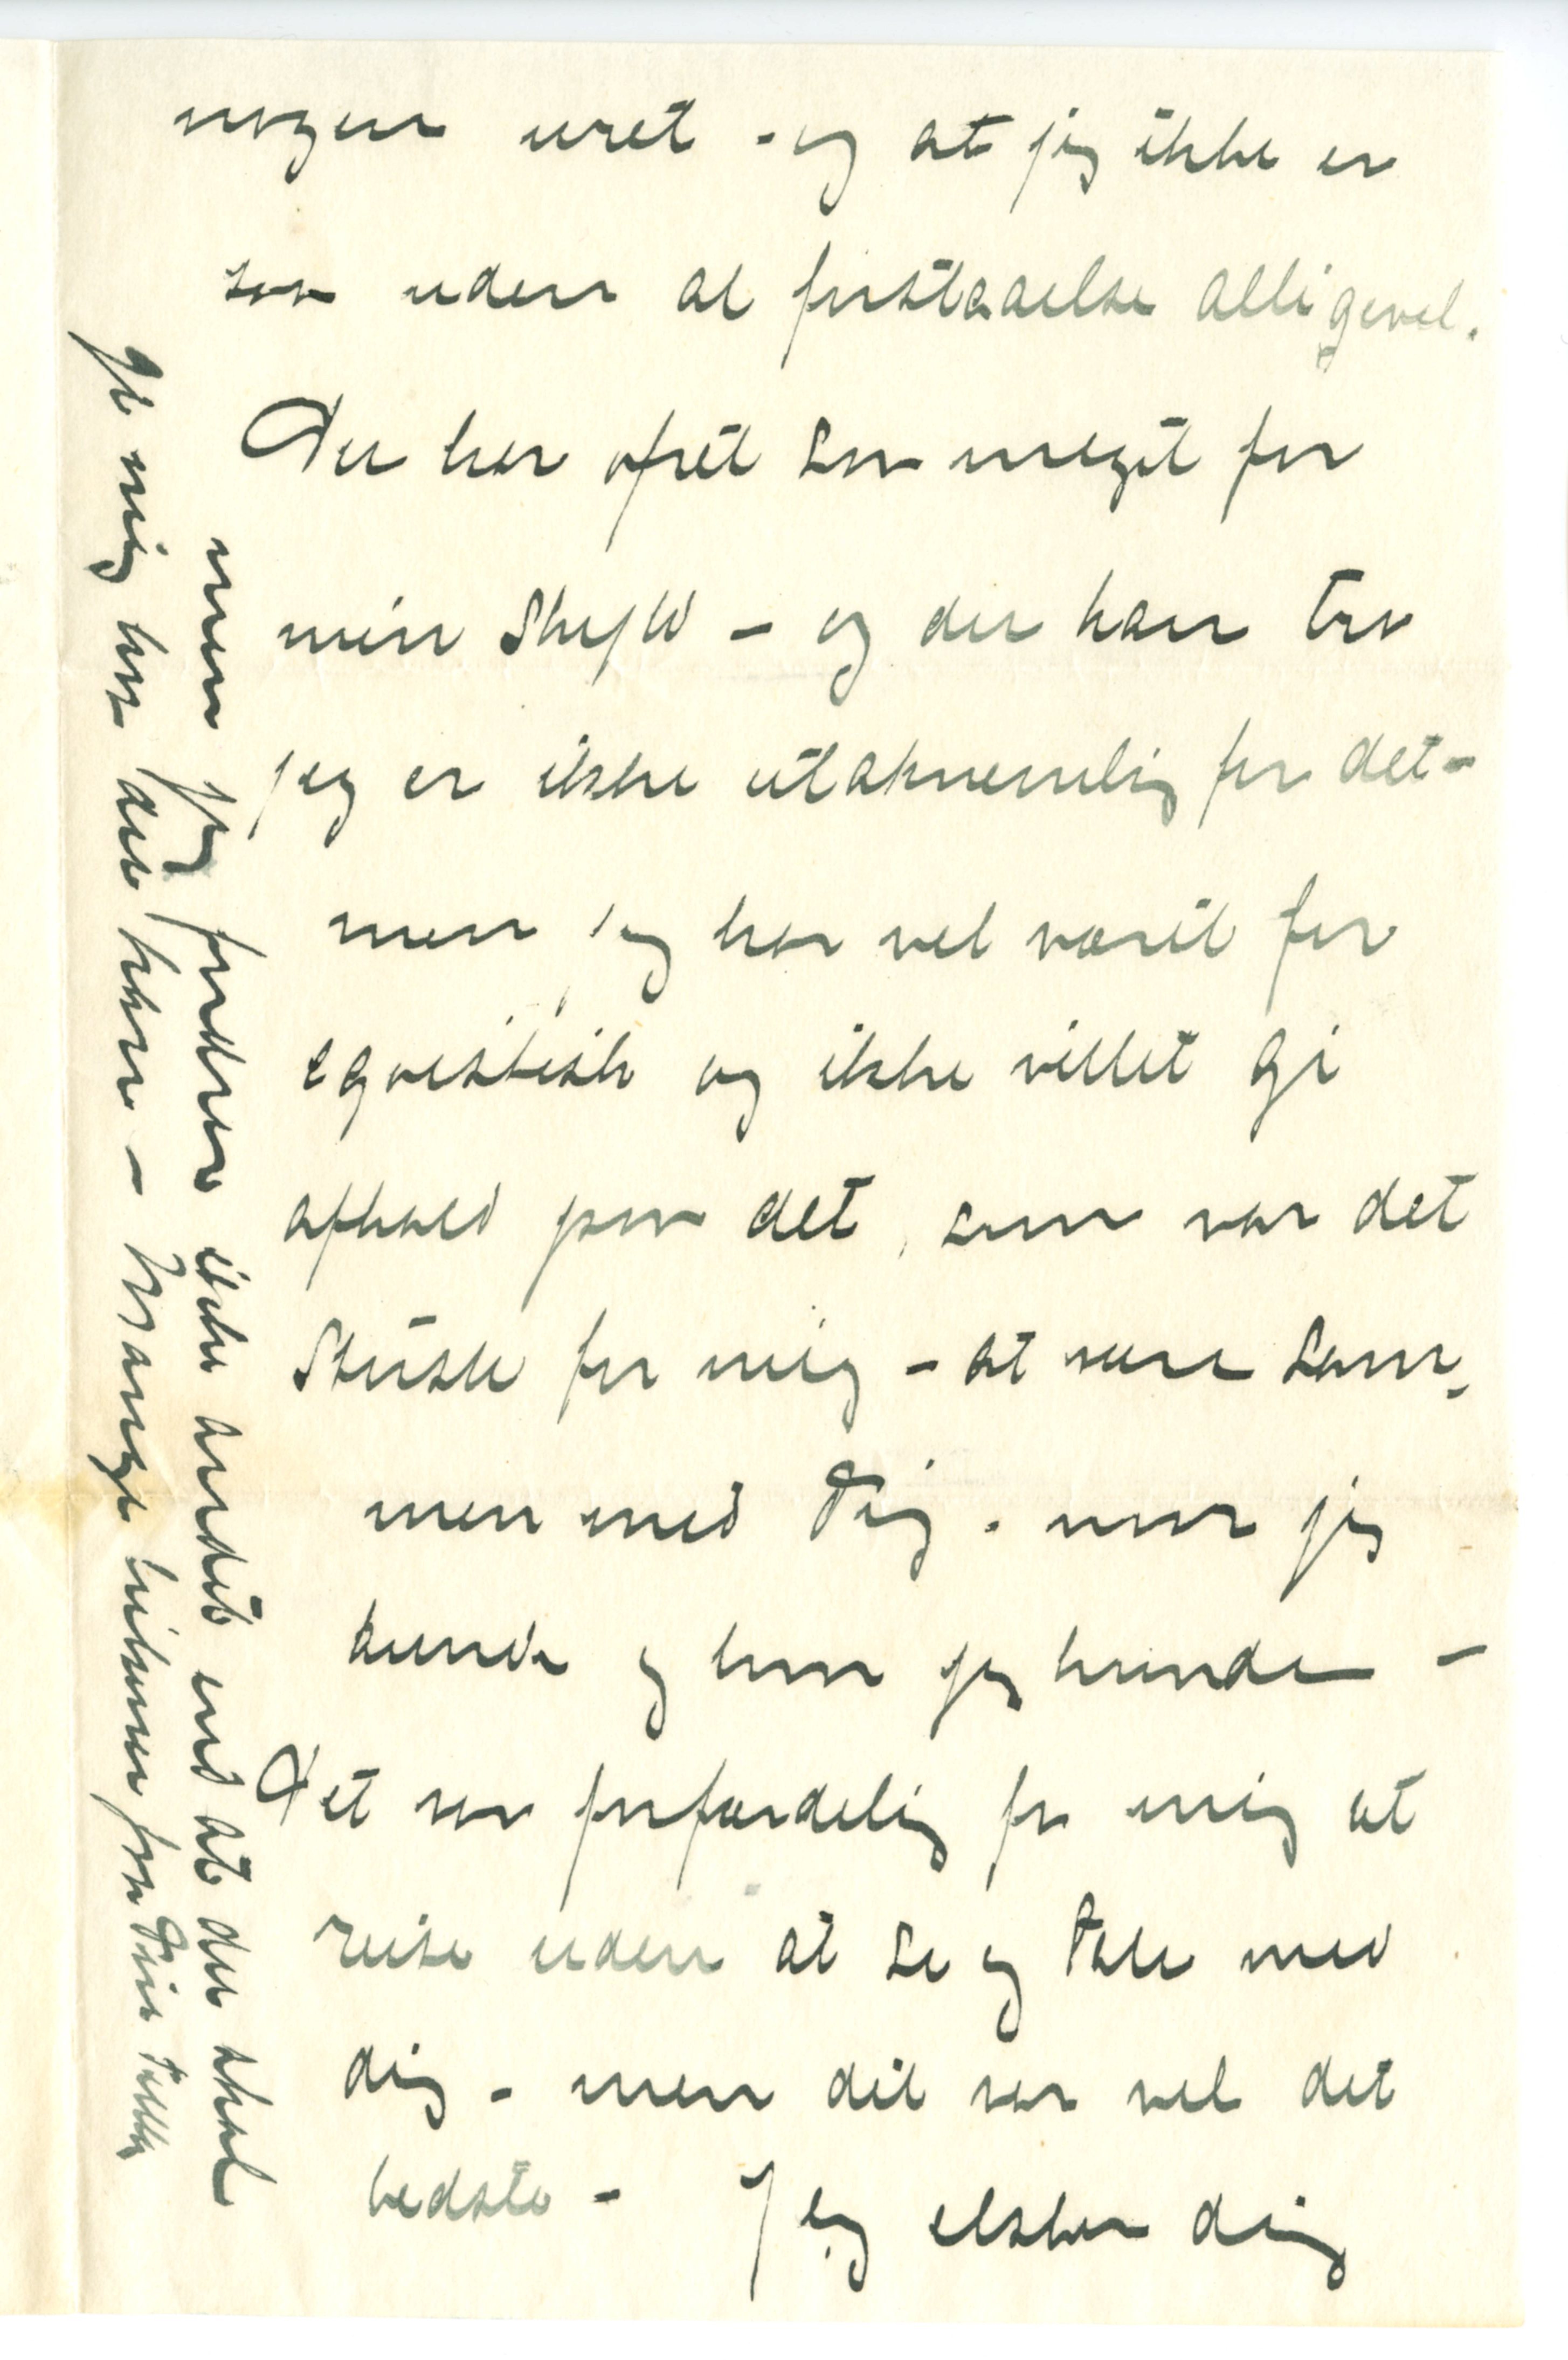 nogen uret - og at jeg ikke er
saa uden al forstaaelse alligevel.
Du har ofret saa meget for
min Skyld - og du kan tro
jeg er ikke utaknemelig for det -
men jeg har vel været for
egoistisk og ikke villet gi
afkald paa det, som var det
Største for mig - at være sam-
men med Dig. naar jeg
kunde og hvor jeg kunde -
Det var forfærdelig for mig at
reise uden at se og tale med
dig - men det var vel det
bedste - Jeg elsker dig
men jeg fordrer ikke andet end at du skal
gi mig bare det
 - Mange hilsner fra Din